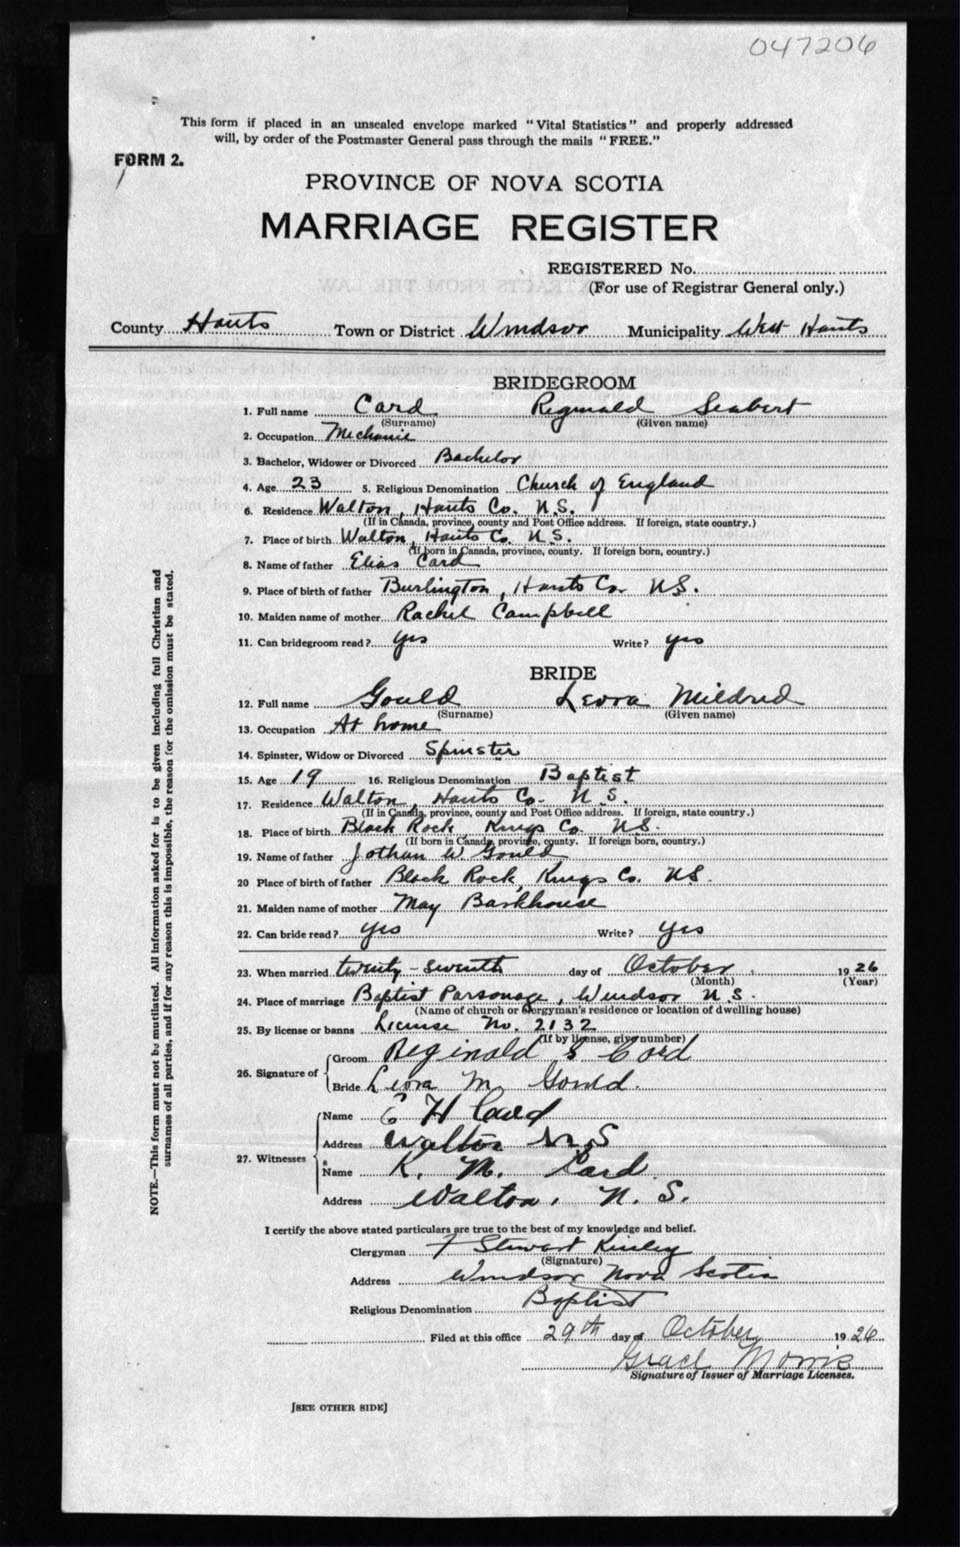 047206
This form if placed in an unsealed envelope marked "Vital Statistics" and properly addressed
will, by order of the Postmaster General pass through the mails "FREE."
FORM 2.
PROVINCE OF NOVA SCOTIA
MARRIAGE REGISTER
REGISTERED No.
(For use of Registrar General only.)
County Hants Town or District Windsor Municipality West Hants
BRIDEGROOM
1. Full name Card Reginald Seabert
(Surname) (Given name)
2. Occupation Mechanic
3. Bachelor, Widower or Divorced Bachelor
4. Age 23 5. Religious Denomination Church of England
6. Residence Walton, Hants Co. N.S.
(If in Canada, province, county and Post Office address. If foreign, state country.)
7. Place of birth Walton, Hants Co. N.S.
(If born in Canada, province, county. If foreign born, country.)
8. Name of father Elias Card
9. Place of birth of father Burlington, Hants Co. N.S.
10. Maiden name of mother Rachel Campbell
11. Can bridegroom read? yes Write? yes
BRIDE
12. Full name Gould Leora Mildred
(Surname) (Given name)
13. Occupation At home
14. Spinster, Widow or Divorced Spinster
15. Age 19 16. Religious Denomination Baptist
17. Residence Walton, Hants Co. N.S.
(If in Canada, province, county and Post Office address. If foreign, state country.)
18. Place of birth Black Rock, Kings Co. N.S.
(If born in Canada, province, county. If foreign born, country.)
19. Name of father Jothan W. Gould
20 Place of birth of father Black Rock, Kings Co. N.S.
21. Maiden name of mother May Barkhouse
22. Can bride read? yes Write? yes
23. When married twenty-seventh day of October 1926
(Month) (Year)
24. Place of marriage Baptist Parsonage, Windsor N.S.
(Name of church or clergyman's residence or location of dwelling house)
25. By license or banns License No. 2132
(If by license, give number)
26. Signature of Groom Reginald S Card
Bride Leora M. Gould.
27. Witnesses Name E H Card
Address Walton N.S
Name K. M. Card.
Address Walton, N. S.
I certify the above stated particulars are true to the best of my knowledge and belief.
Clergyman F Stewart Kinley
(Signature)
Address Windsor Nova Scotia
Religious Denomination Baptist
Filed at this office 29th day of October 1926
Grace Morris
Signature of Issuer of Marriage Licenses.
[SEE OTHER SIDE]
NOTE.—This form must not be mutilated. All information asked for is to be given including full Christian and
surnames of all parties, and if for any reason this is impossible, the reason for the omission must be stated.